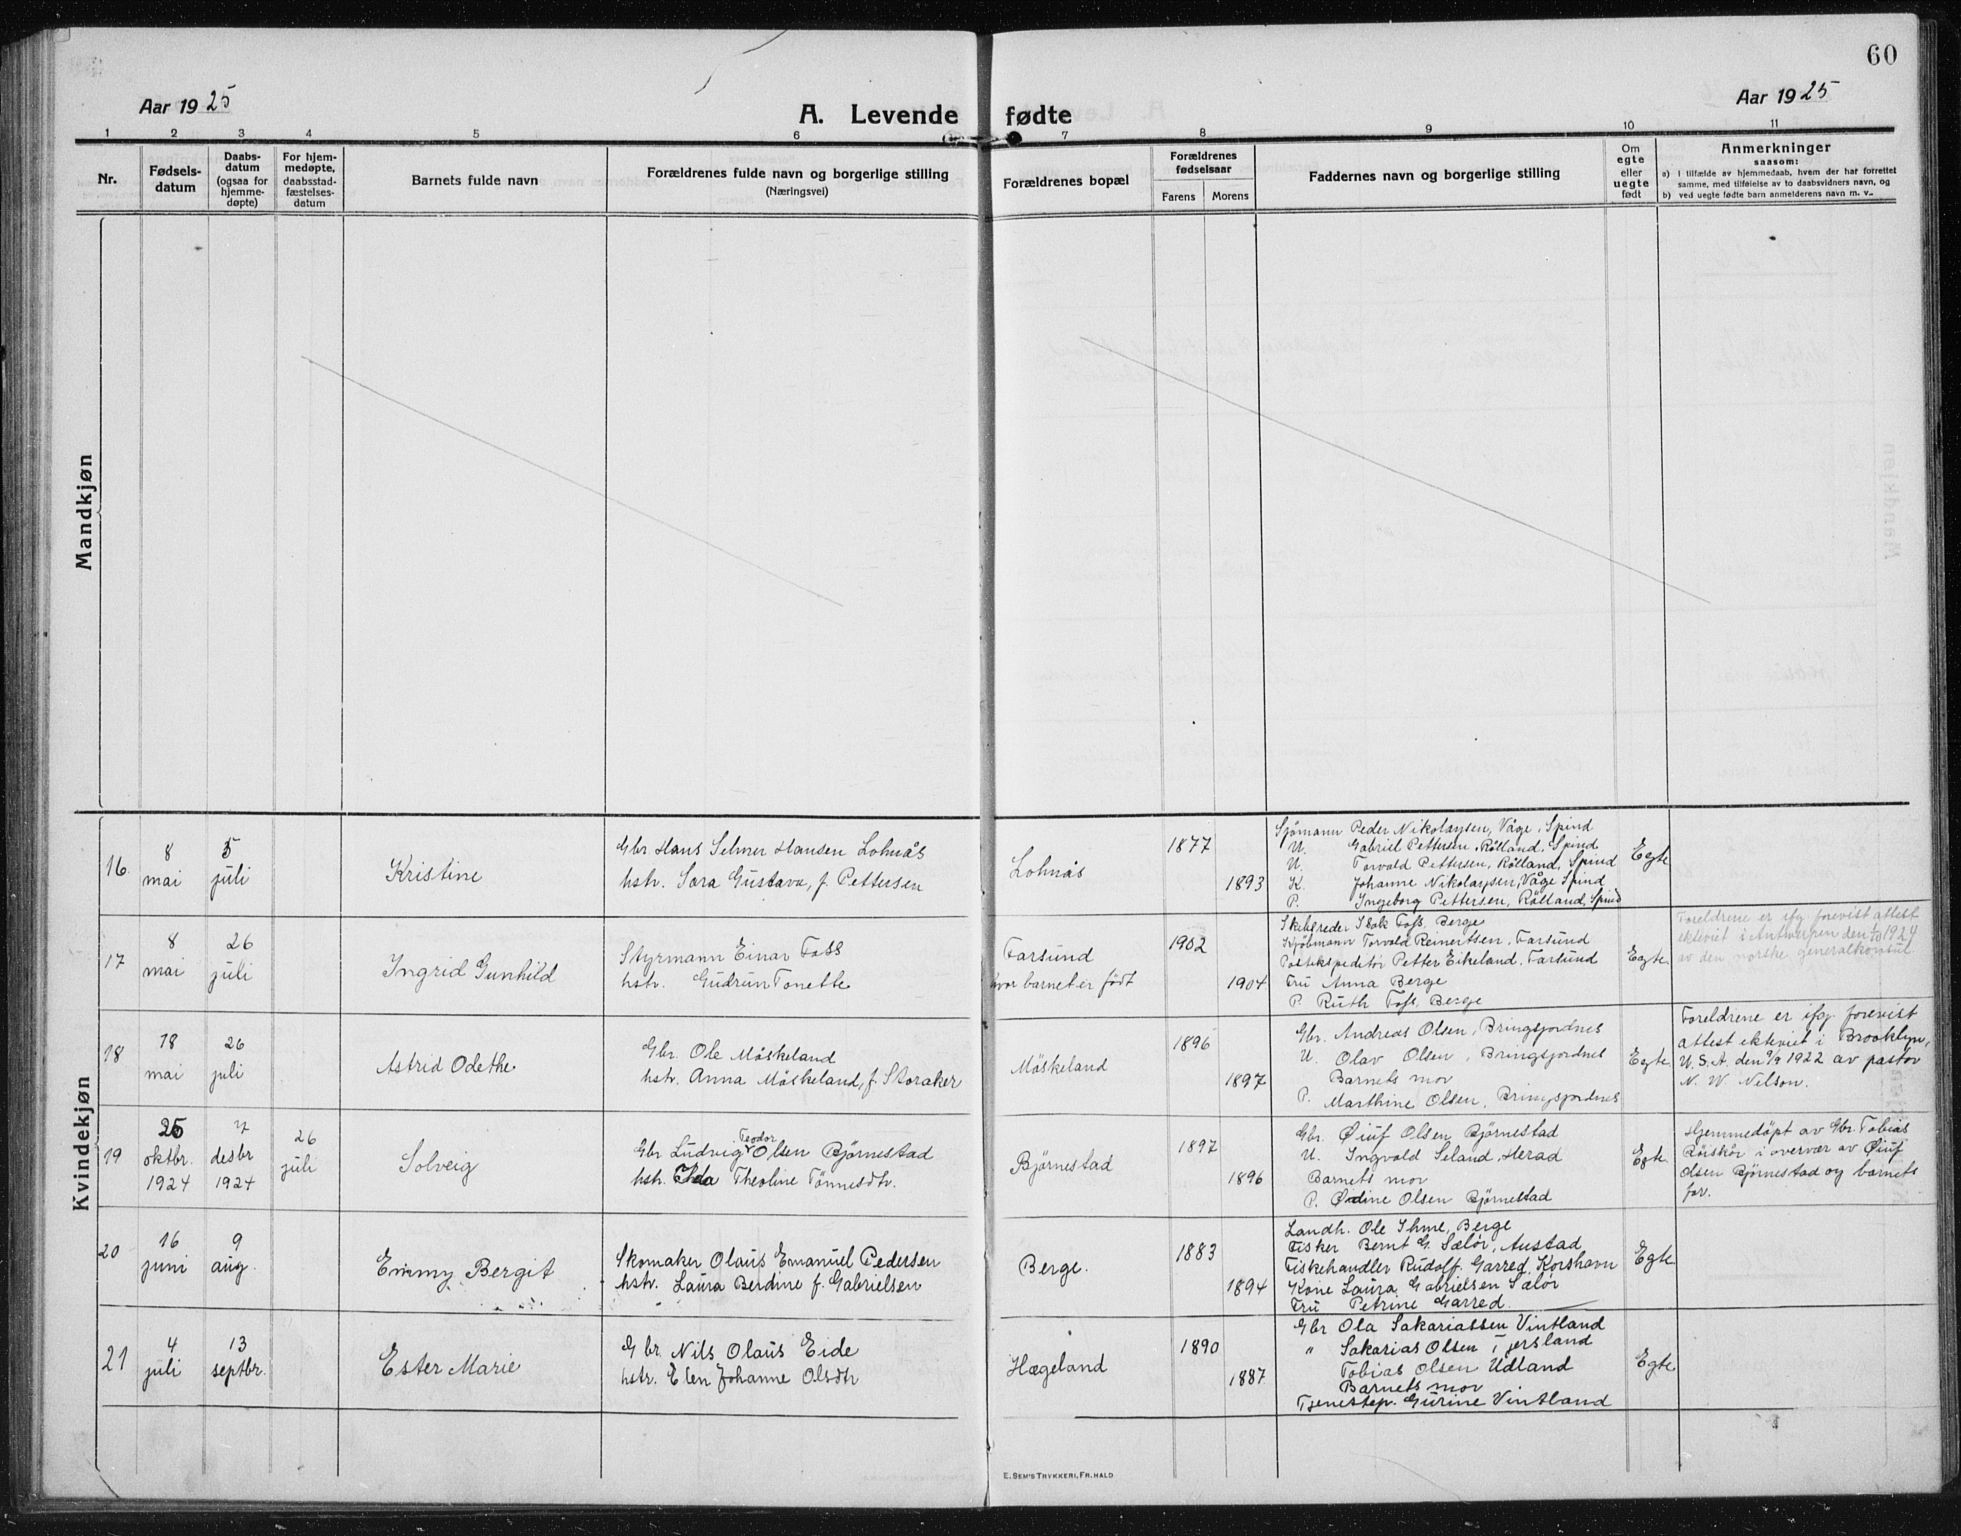 60
Aar 1925
A. Levende fødte
Aar 1925
1 2 3 4 5 6 7 8 9 10 11
Nr.
Fødsels-
datum
Daabs-
datum
(ogsaa for
hjemme-
døpte)
For hjem-
medøpte,
daabsstad-
fæstelses-
datum
Barnets fulde navn
Forældrenes fulde navn og borgerlige stilling
(Næringsvei)
Forældrenes bopæl
Forældrenes
fødselsaar
Farens Morens
Faddernes navn og borgerlige stilling
Om
egte
eller
uegte
født
Anmerkninger
saasom:
a) I tilfælde av hjemmedaab, hvem der har forrettet
samme, med tilføielse av to daabsvidners navn, og
b) ved uegte fødte barn anmelderens navn m. v.
Mandkjøn
Kvindekjøn
16
8
mai
5
juli
Kristine
Gbr Hans Selmer Hansen Lohnås
hstr. Sara Gustava, f. Pettersen
Lohnås
1877
1893
Sjömann Peder Nikolaysen, Våge, Spind
U. Gabriel Pettersen, Råland, Spind
U. Torvald Pettersen, Råland, Spind
K. Johanne Nikolaysen, Våge Spind
P. Ingeborg Pettersen, Råland, Spind
Egte
17
8
mai
26
juli
Ingrid Gunhild
Styrmann Einar Foss
hstr. Gudrun Tonette
Farsund
hvor barnet er født
1902
1904
Skibsreder Isak Foss, Berge
Kjöbmann Torvald Reinertsen, Farsund
Postekspeditør Petter Eikeland, Farsund
Fru Anna Berge
P. Ruth Foss, Berge
Egte
Foreldrene er ifg. forevist attest
ektviet i Antwerpen den 1/10 1924
av den norske generalkonsul
18
18
mai
26
juli
Astrid Odethe
Gbr. Ole Möskeland
hstr. Anna Möskeland, f. Storaker
Möskeland
1896
1897
Gbr. Andreas Olsen, Bringsjordnes
U. Olav Olsen, Bringsjordnes
Barnets mor
P. Marthine Olsen, Bringsjordnes
Egte
Foreldrene er ifg. forevist
attest ektviet i Brooklyn,
U.S.A. den 9/9 1922 av pastor
N. W. Nelson.
19
25
oktbr.
1924
7
desbr
1924
26
juli
Solveig
Gbr Ludvig Teodor Olsen Bjørnestad
hstr. Ida Theoline Tønnesdtr.
Bjørnestad
1897
1896
Gbr. Øiuf Olsen Bjørnestad
U. Ingvald Seland, Herad
Barnets mor
P. Ødine Olsen Bjørnestad
Egte
Hjemmedöpt av Gbr. Tobias
Rörskör i overvær av Øiuf
Olsen Bjørnestad og barnets
far.
20
16
juni
9
aug.
Emmy Bergit
Skomaker Olaus Emanuel Pedersen
hstr. Laura Berdine f. Gabrielsen
Berge.
1883
1894
Landh. Ole Ihme, Berge
Fisker Bernt G. Sælör, Austad
Fiskehandler Rudolf Garred, Korshavn
Kone Laura Gabrielsen Sælör
Fru Petrine Garred
Egte
21
4
juli
13
septbr.
Ester Marie
Gbr. Nils Olaus Eide
hstr. Elen Johanne Olsdtr
Hægeland
1890
1887
Gbr Ola Sakariassen Vintland
" Sakarias Olsen Tjersland
Tobias Olsen Udland
Barnets mor
Tjenestep. Gurine Vintland
Egte
E. SEM'S TRYKKERI, FR. HALD